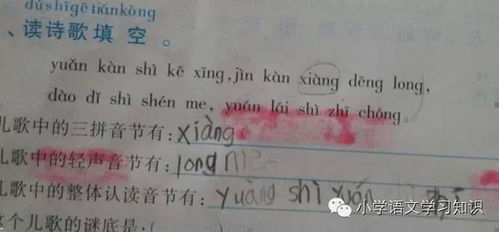 dúshīgētiánkòng
、读诗歌填空。
yuǎn kàn shì kē xīng, jìn kàn xiàng dēng long,
dào dǐ shì shén me, yuán lái shì zhī chóng。
儿歌中的三拼音节有:xiàng
儿歌中的轻声音节有:long me
儿歌中的整体认读音节有:yuǎng shì yuán
这个儿歌的谜底是:(
小学语文学习知识